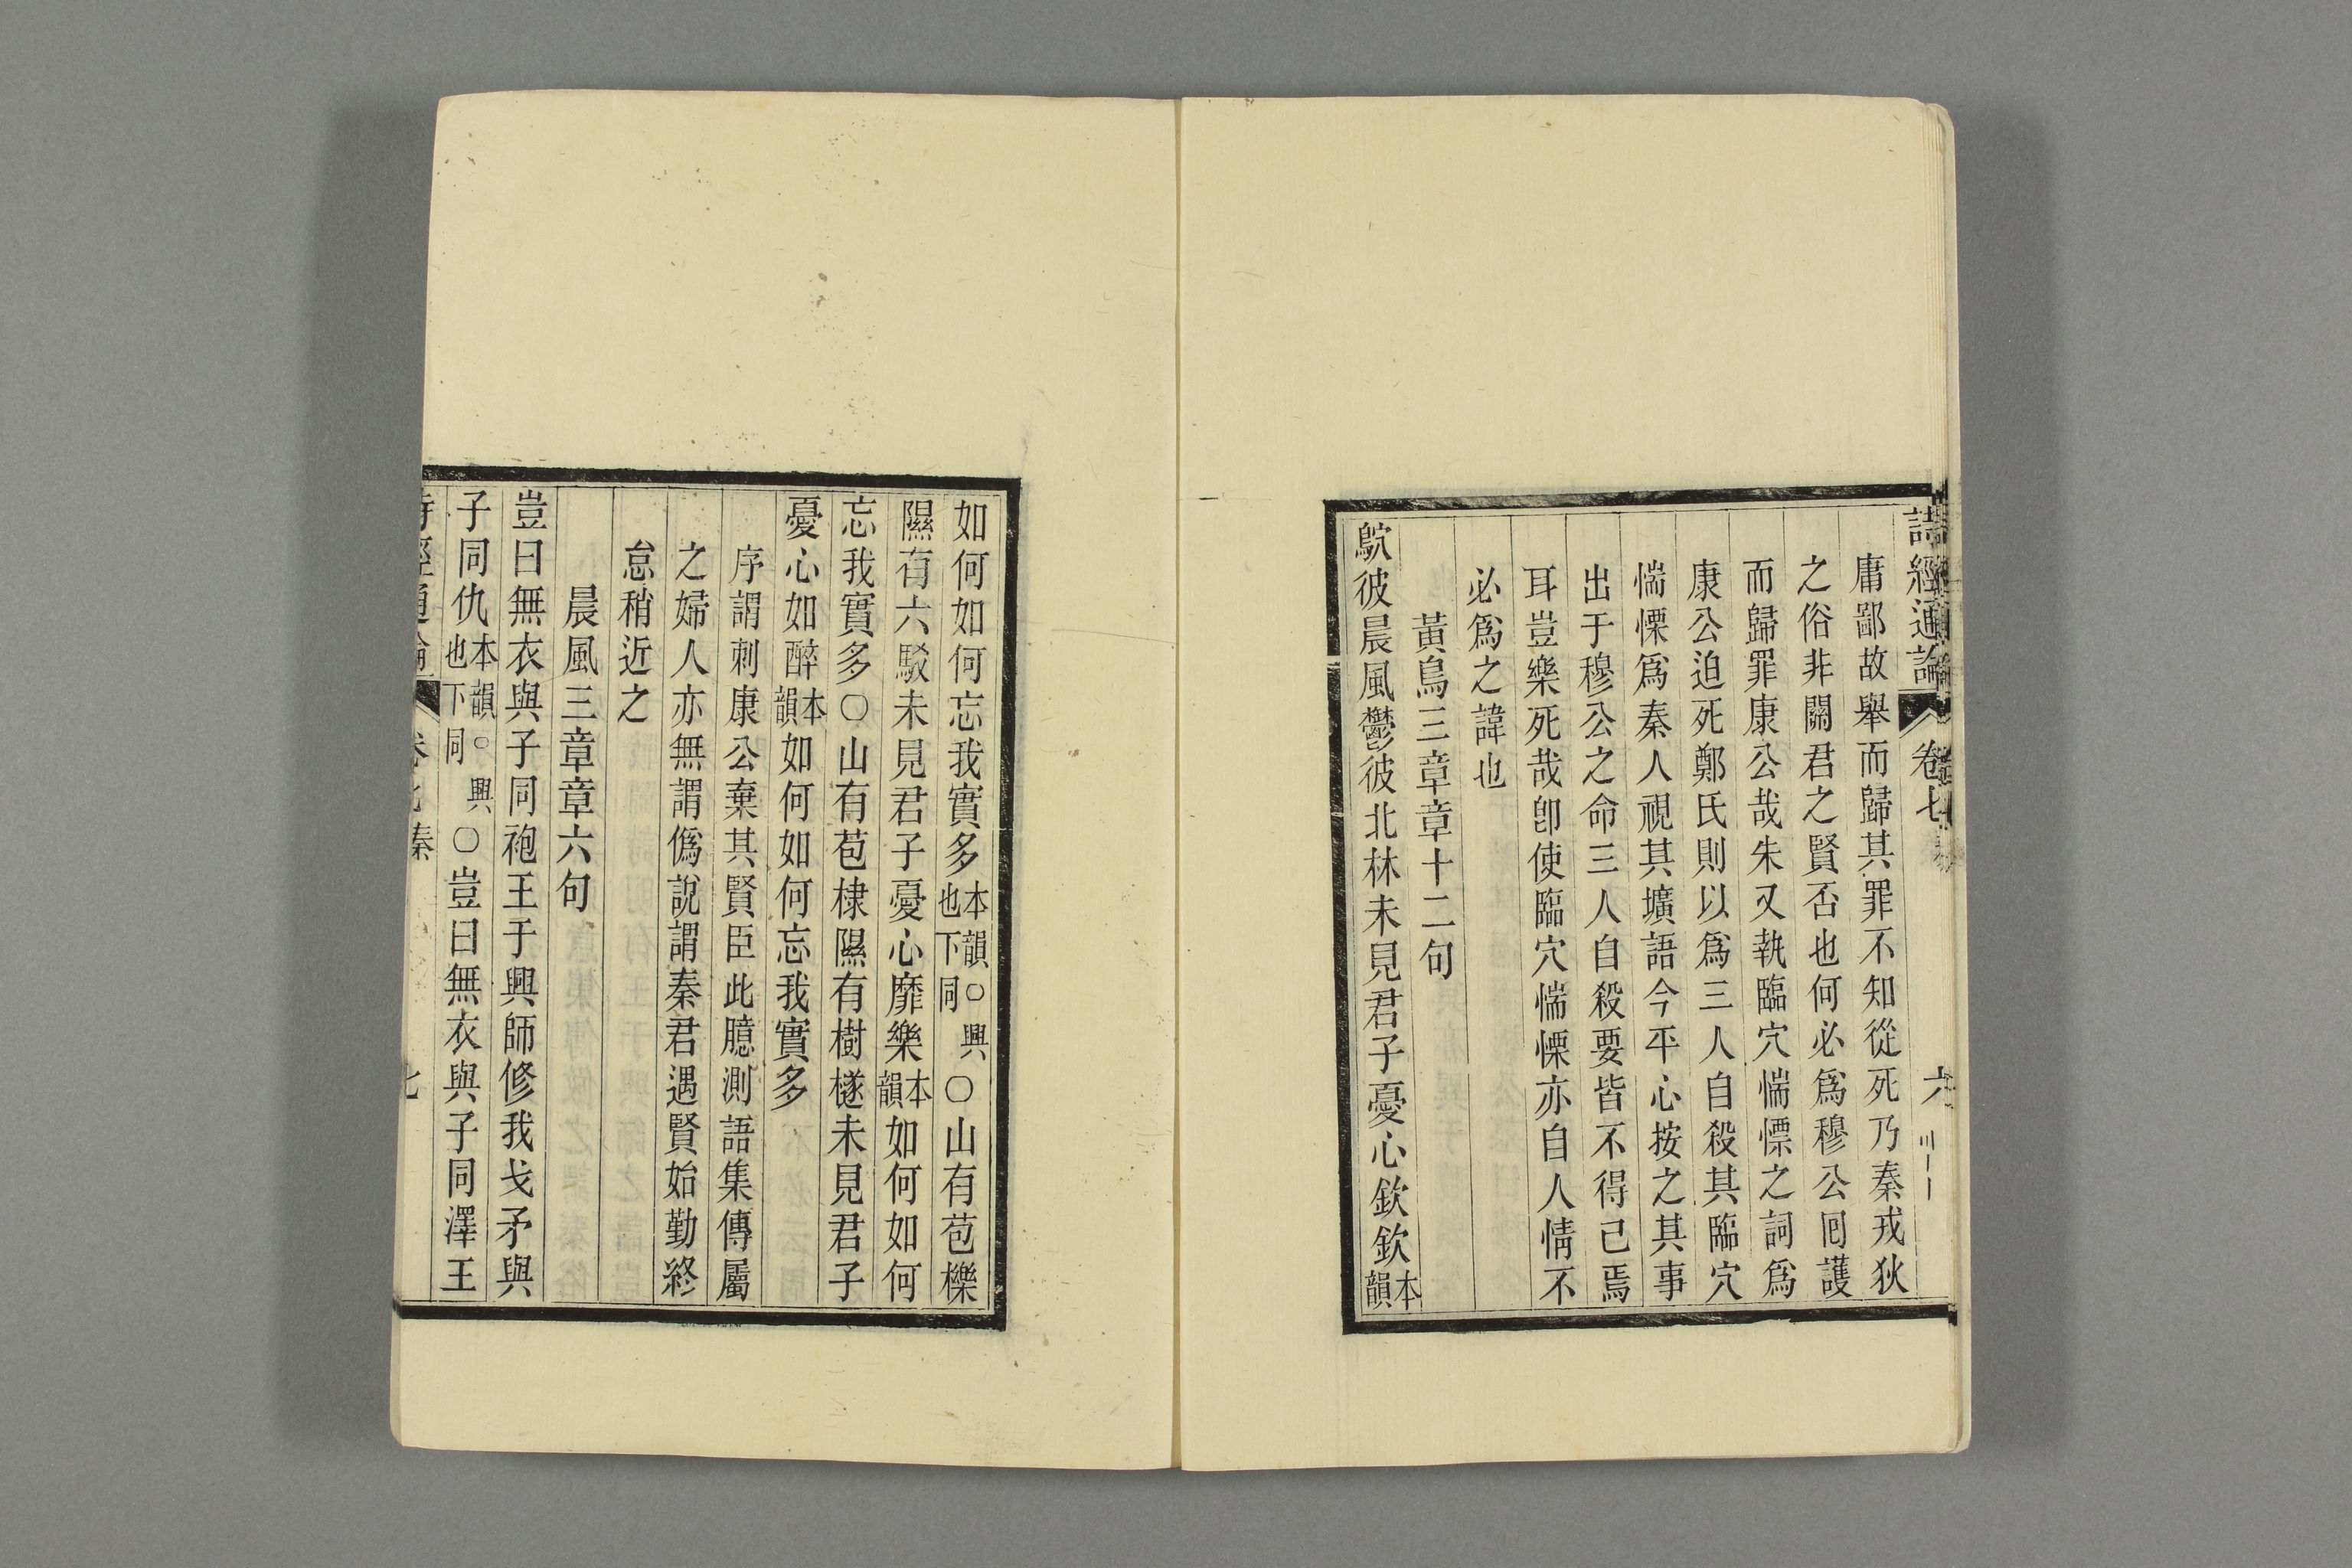 詩經通論 卷七 六
庸鄙故舉而歸其罪不知從死乃秦戎狄
之俗非關君之賢否也何必爲穆公囘護
而歸罪康公哉朱又執臨穴惴慄之詞爲
康公迫死鄭氏則以爲三人自殺其臨穴
惴慄爲秦人視其壙語今平心按之其事
出于穆公之命三人自殺要皆不得已焉
耳豈樂死哉卽使臨穴惴慄亦自人情不
必爲之諱也
黃鳥三章章十二句
鴥彼晨風鬱彼北林未見君子憂心欽欽本韻
如何如何忘我實多本韻○興也下同○山有苞櫟
隰有六駁未見君子憂心靡樂本韻如何如何
忘我實多○山有苞棣隰有樹檖未見君子
憂心如醉本韻如何如何忘我實多
序謂刺康公棄其賢臣此臆測語集傳屬
之婦人亦無謂僞說謂秦君遇賢始勤終
怠稍近之
晨風三章章六句
豈曰無衣與子同袍王于興師修我戈矛與
子同仇本韻○興也下同○豈曰無衣與子同澤王
詩經通論 卷七秦 七